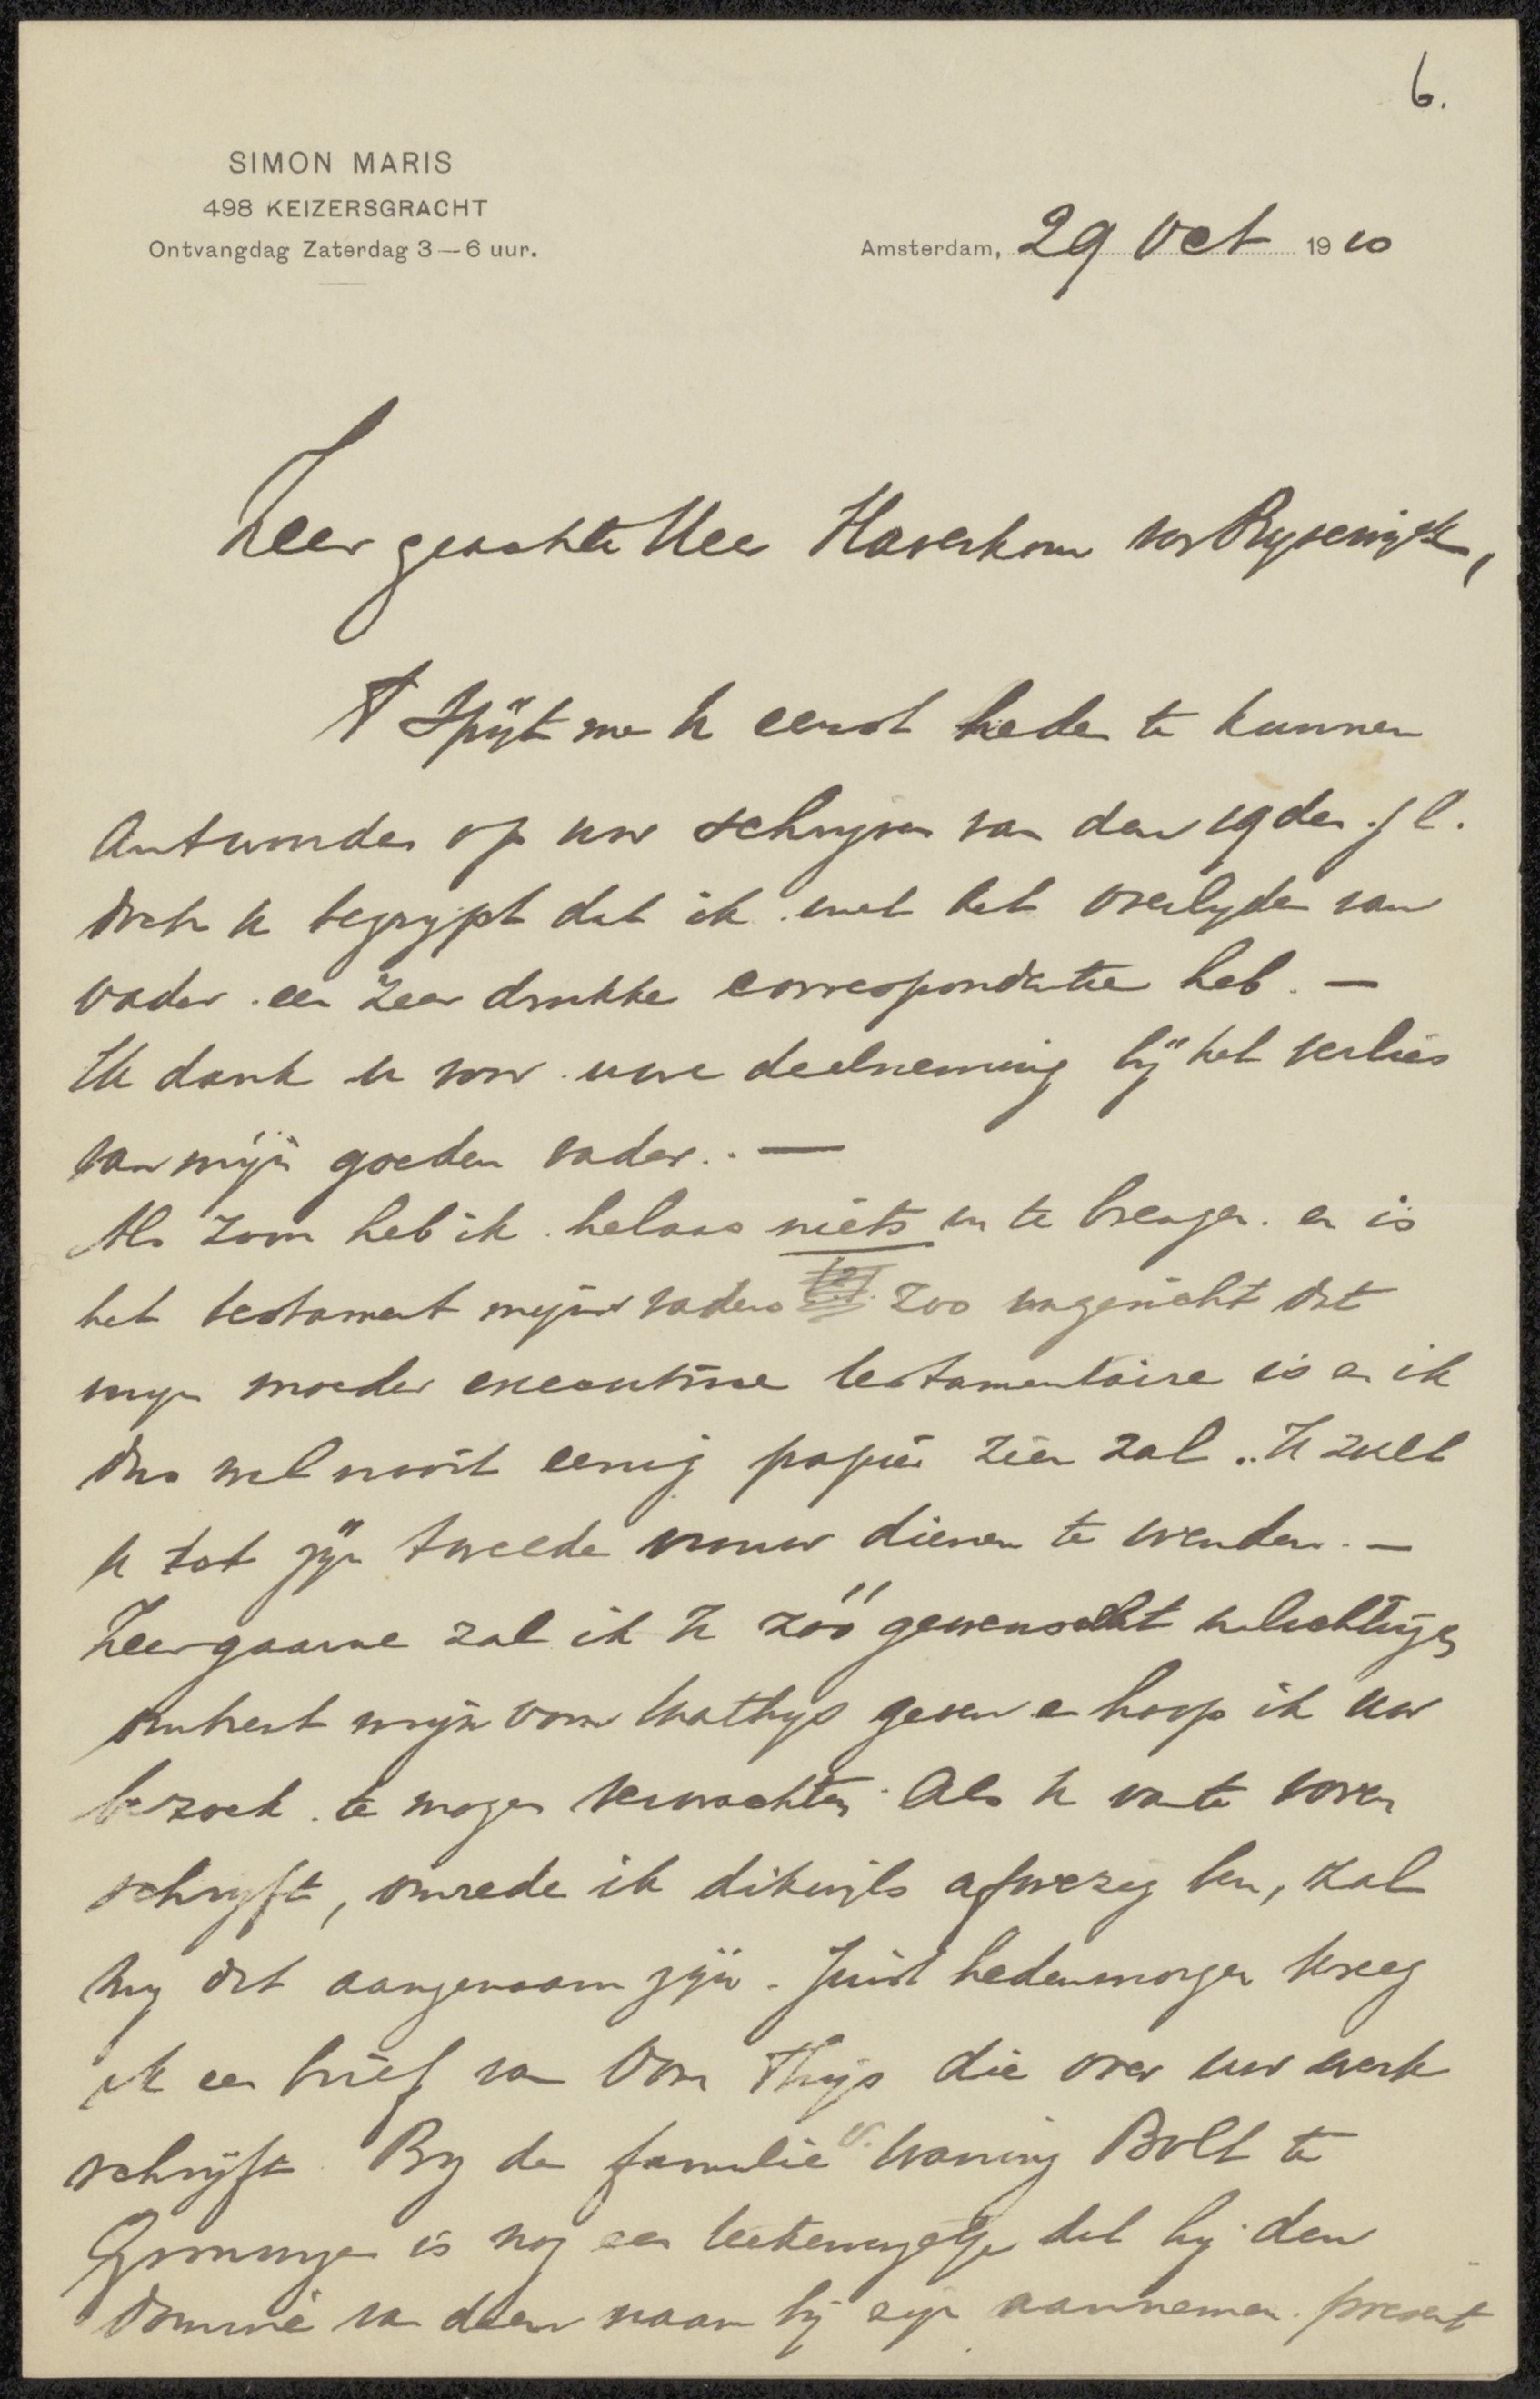 6.
SIMON MARIS
498 KEIZERSGRACHT
Ontvangdag Zaterdag 3—6 uur.
Amsterdam, 29 Oct 1910
Zeer geachte Heer Haverkorn van Rysewyk,
't Spijt me U eerst heden te kunnen
antwoorden op uw schryven van den 19den jl.
doch U begrypt dat ik met het overlyden van
vader een zeer drukke correspondentie heb. —
Ik dank U voor uwe deelneming bij het verlies
van mijn goeden vader. —
Als zoon heb ik helaas niets in te brengen en is
het testament mijns vaders zoo ingericht dat
myn moeder executrice testamentaire is en ik
dus wel nooit eenig papier zien zal. U zult
U tot zijn tweede vrouw dienen te wenden. —
Zeer gaarne zal ik U zóó gewenscht inlichtingen
omtrent mijn oom Mathys geven en hoop ik uw
bezoek te mogen verwachten. Als U van te voren
schryft, omrede ik dikwyls afwezig ben, zal
my dat aangenaam zijn. Juist hedenmorgen kreeg
ik een brief van Oom Thijs die over uw werk
schrijft. By de familie v. Waning Bolt te
Groningen is nog een teekeningetje dat hij den
dominé van dien naam bij zijn aannemen present